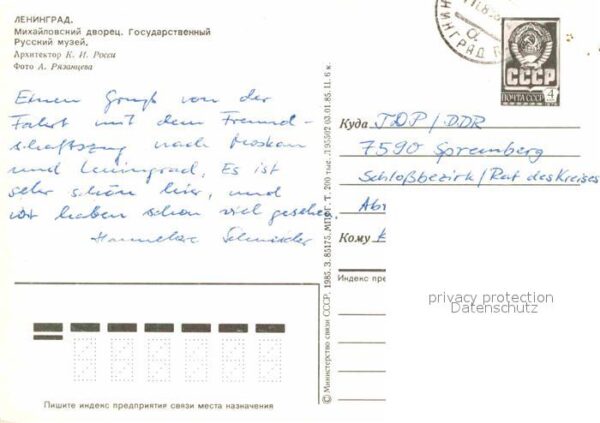 ЛЕНИНГРАД.
Михайловский дворец. Государственный
Русский музей.
Архитектор К. И. Росси
Фото А. Рязанцева
Einen Gruß von der
Fahrt mit dem Freund-
schaftszug nach Moskau
und Leningrad. Es ist
sehr schön hier, und
wir haben schon viel gesehen.
Hannelore Schneider
Пишите индекс предприятия связи места назначения
© Министерство связи СССР, 1985. З. 85175. МПФГ. Т. 200 тыс. 03.01.85. Ц. 6 к.
СССР
ПОЧТА СССР 4
Куда ГДР/DDR
7590 Spremberg
Schloßbezirk/Rat des Kreises
Кому
Индекс пре
privacy protection
Datenschutz